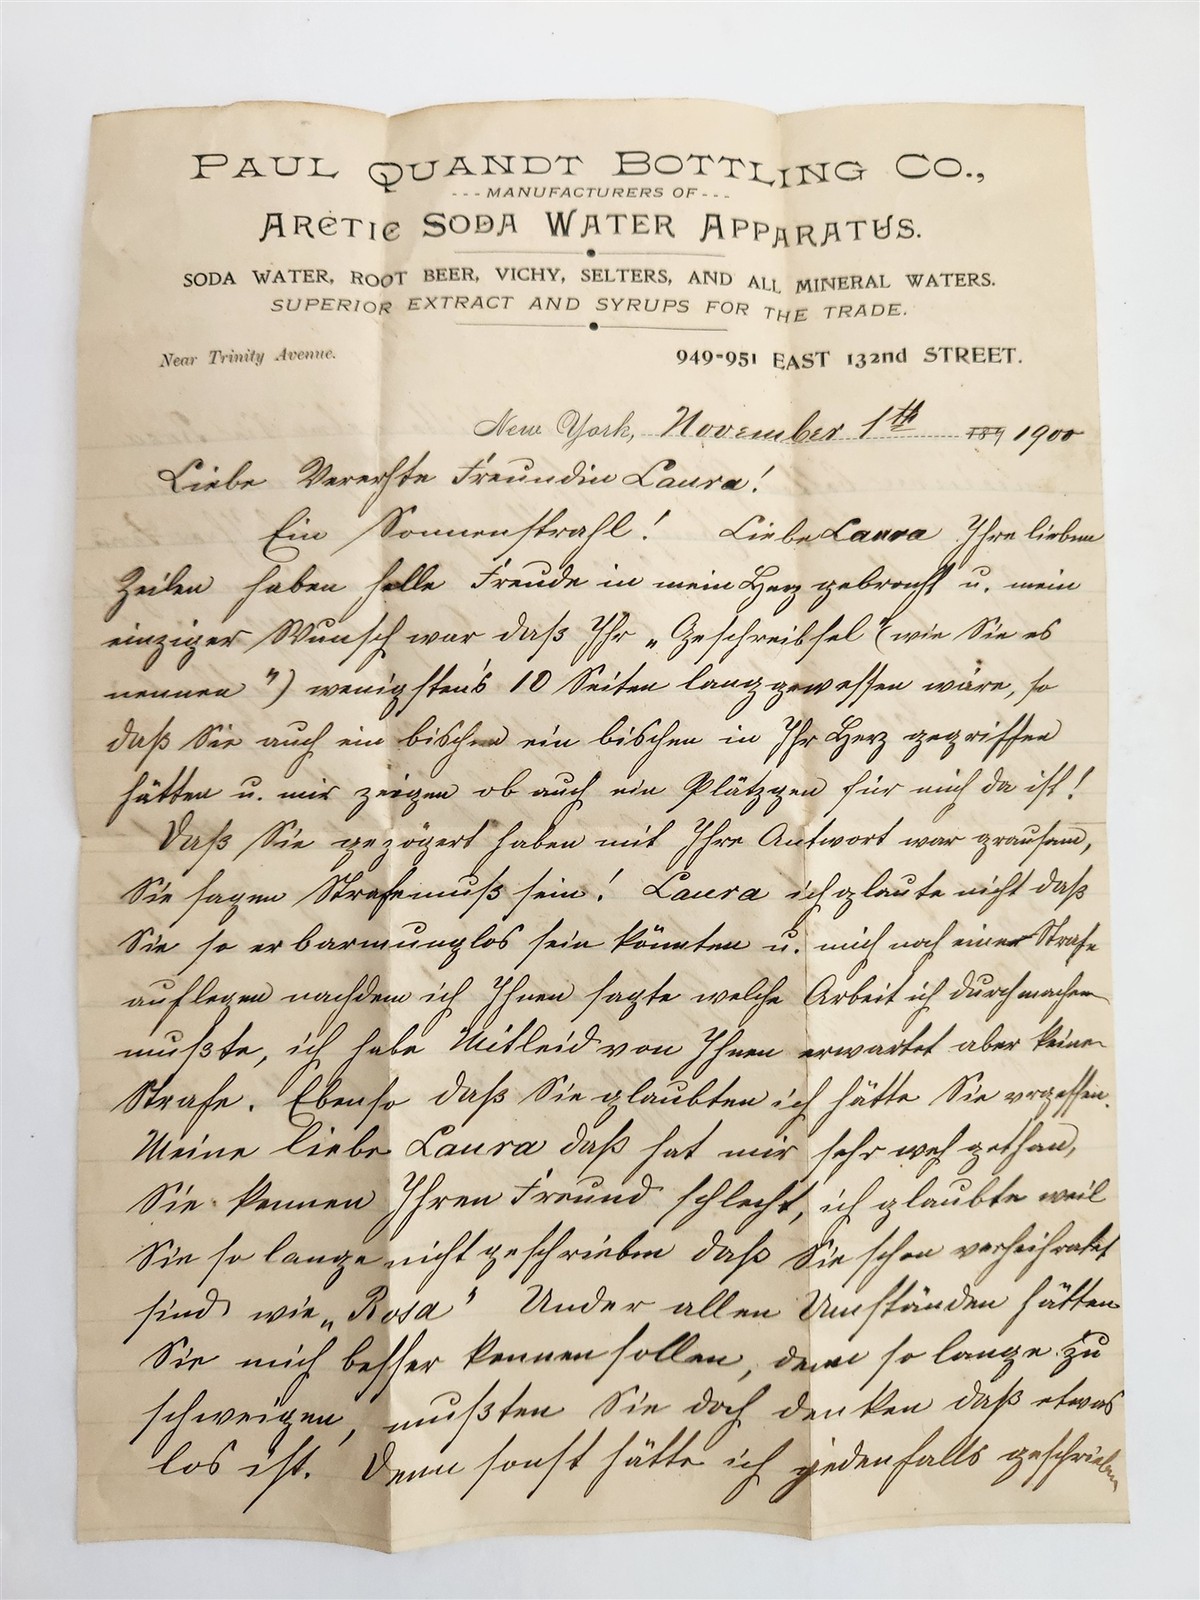 PAUL QUANDT BOTTLING CO.,
---MANUFACTURERS OF---
ARCTIC SODA WATER APPARATUS.
SODA WATER, ROOT BEER, VICHY, SELTERS, AND ALL MINERAL WATERS.
SUPERIOR EXTRACT AND SYRUPS FOR THE TRADE.
Near Trinity Avenue. 949-951 EAST 132nd STREET.
New York, November 1th 189 1900
Liebe Verehrte Freundin Laura!
Ein Sonnenstrahl! Liebe Laura Ihre lieben
Zeilen haben helle Freude in mein Herz gebracht u. mein
einziger Wunsch war daß Ihr „Geschreibsel" (wie Sie es
nennen") wenigstens 10 Seiten lang gewessen wäre, so
daß Sie auch ein bischen ein bischen in Ihr Herz gegriffen
hätten u. mir zeigen ob auch ein Plätzgen für mich da ist!
Daß Sie gezögert haben mit Ihre Antwort war grausam,
Sie sagen Strafe muß sein! Laura ich glaute nicht daß
Sie so erbarmunglos sein könnten u. mich noch einer Strafe
auflegen nachdem ich Ihnen sagte welche Arbeit ich durchmachen
mußte, ich habe Mitleid von Ihnen erwartet aber keine
Strafe. Ebenso daß Sie glaubten ich hätte Sie vrgessen.
Meine liebe Laura daß hat mir sehr weh gethan,
Sie kennen Ihren Freund schlecht, ich glaubte weil
Sie so lange nicht geschrieben daß Sie schon verheihratet
sind wie „Rosa" Under allen Umständen hätten
Sie mich besser kennen sollen, denn so lange zu
schweigen, mußten Sie doch denken daß etwas
los ist. Denn sonst hätte ich jedenfalls geschrieben